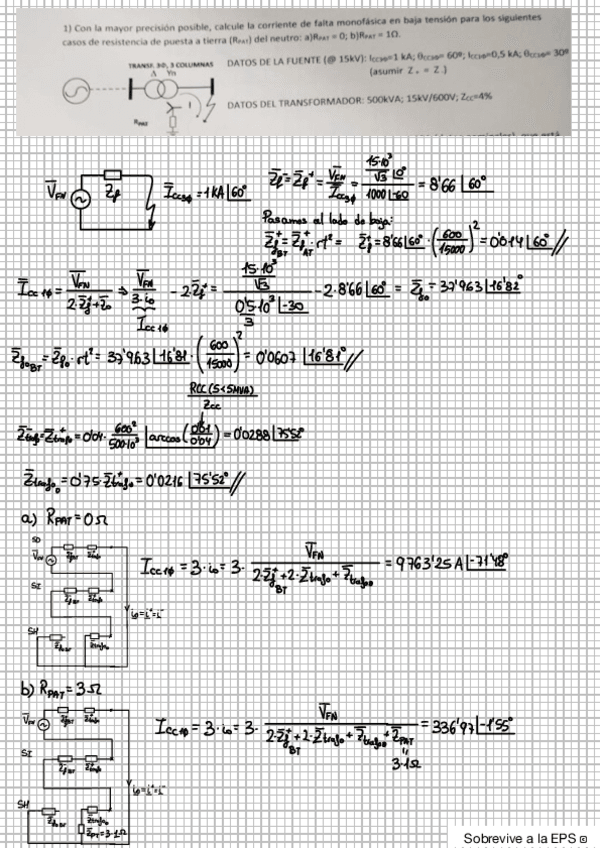 1) Con la mayor precisión posible, calcule la corriente de falta monofásica en baja tensión para los siguientes
casos de resistencia de puesta a tierra (RPAT) del neutro: a)RPAT = 0; b)RPAT = 1Ω.
TRANSF. 3Φ, 3 COLUMNAS
DATOS DE LA FUENTE (@ 15kV): Icc3Φ=1 kA; θcc3Φ= 60º; Icc1Φ=0,5 kA; θcc1Φ= 30º
(asumir Z+ = Z-)
Δ Yn
DATOS DEL TRANSFORMADOR: 500kVA; 15kV/600V; Zcc=4%
RPAT
VFN Zf Icc3ϕ = 1kA|60°
Zf- = Zf+ = VFN/Icc3ϕ = (15·10³/√3 |0°)/(1000|-60) = 8'66 |60°
Pasamos al lado de baja:
Zf+BT = Zf+AT · rt² = Zf- = 8'66|60° · (600/15000)² = 0'014|60° //
Icc1ϕ = VFN/(2·Zf+ + Zo) ⇒ VFN/(3·io) - 2·Zf+ = (15·10³/√3)/(0'5·10³|-30/3) - 2·8'66|60° = Zfo = 37'963|16'82°
Icc1ϕ
ZfoBT = Zfo · rt² = 37'963|16'81 · (600/15000)² = 0'0607 |16'81° //
RCC (S<5MVA)
Zcc
Ztrafo- = Ztrafo+ = 0'04 · 600²/500·10³ |arccos(0'01/0'04) = 0'0288|75'52°
Ztrafo0 = 0'75·Ztrafo+ = 0'0216 |75'52° //
a) RPAT = 0Ω
SD
VFN
SI
SH
io=i+=i-
Icc1ϕ = 3·io = 3· VFN/(2·Zf+BT + 2·Ztrafo + Ztrafo0) = 9763'25 A|-71'48°
b) RPAT = 3Ω
VFN
SI
SH
io=i+=i-
ZPT=3·1Ω
Icc1ϕ = 3·io = 3· VFN/(2·Zf+BT + 2·Ztrafo + Ztrafo0 + ZPAT) = 336'97|-1'55°
3·1Ω
Sobrevive a la EPS